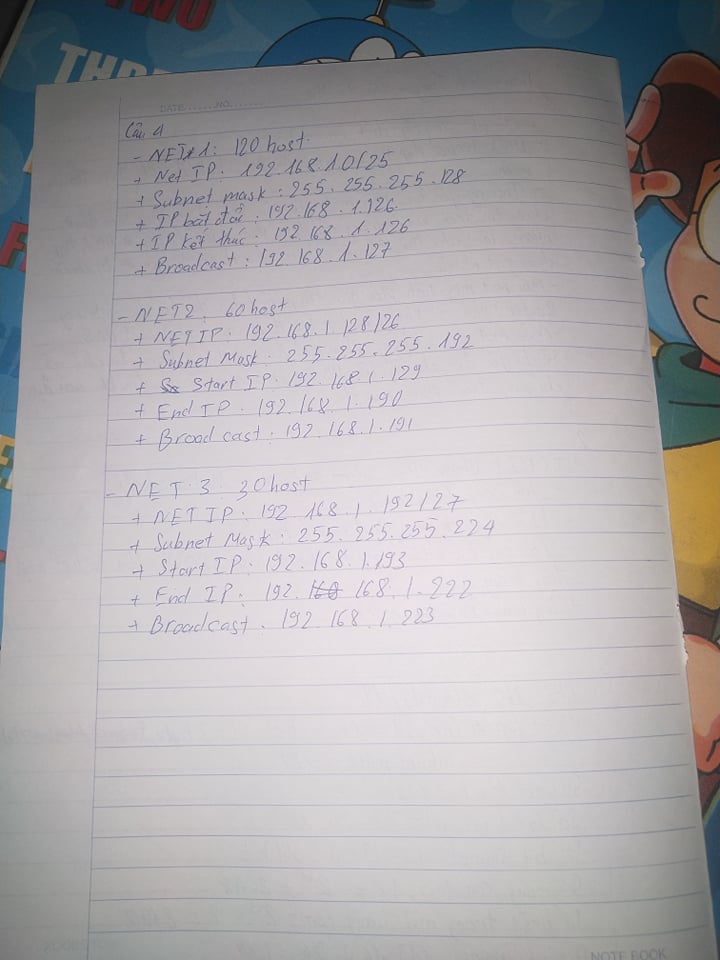 TWO
THR
DATE.......NO.......
Câu 1
- NET 1: 120 host.
+ Net IP: 192.168.1.0/25
+ Subnet mask: 255.255.255.128
+ IP bắt đầu: 192.168.1.126
+ IP kết thúc: 192.168.1.126
+ Broadcast: 192.168.1.127
- NET2: 60 host
+ NET IP: 192.168.1.128/26
+ Subnet Mask: 255.255.255.192
+ Start IP: 192.168.1.129
+ End IP: 192.168.1.190
+ Broadcast: 192.168.1.191
- NET 3: 30 host
+ NET IP: 192.168.1.192/27
+ Subnet Mask: 255.255.255.224
+ Start IP: 192.168.1.193
+ End IP: 192.168.1.222
+ Broadcast: 192.168.1.223
NOTE BOOK